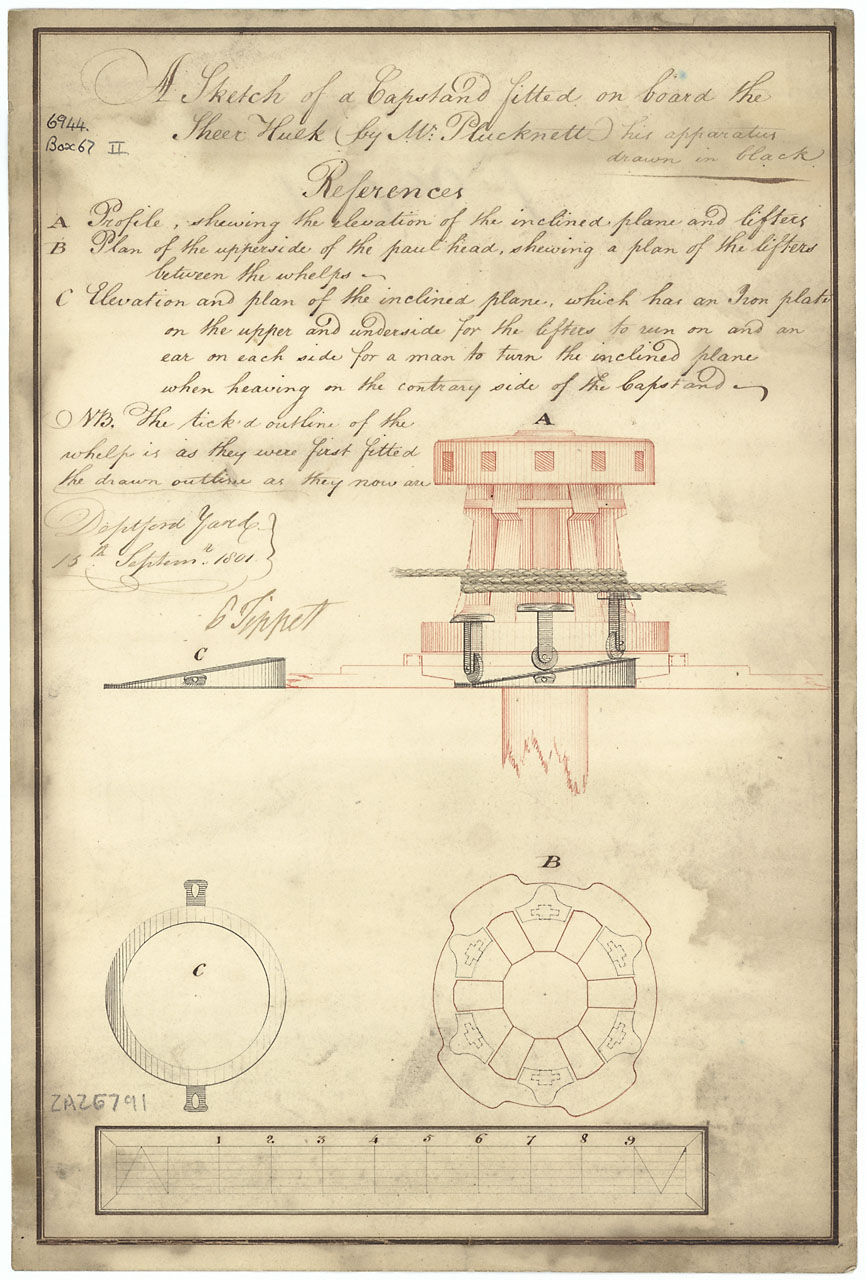 A Sketch of a Capstand fitted on board the
Sheer Hulk (by Mr. Plucknett) his apparatus
drawn in black
6944.
Box 67 II
References
A Profile, shewing the elevation of the inclined plane and lifters
B Plan of the upperside of the paul head, shewing a plan of the lifters
between the whelps
C Elevation and plan of the inclined plane, which has an Iron plate
on the upper and underside for the lifters to run on and an
ear on each side for a man to turn the inclined plane
when heaving on the contrary side of the Capstand
NB. The tick'd outline of the
whelp is as they were first fitted
the drawn outline as they now are
Deptford Yard
15th Septemr. 1801
Tippett
A
C
B
C
ZAZ6791
1 2 3 4 5 6 7 8 9